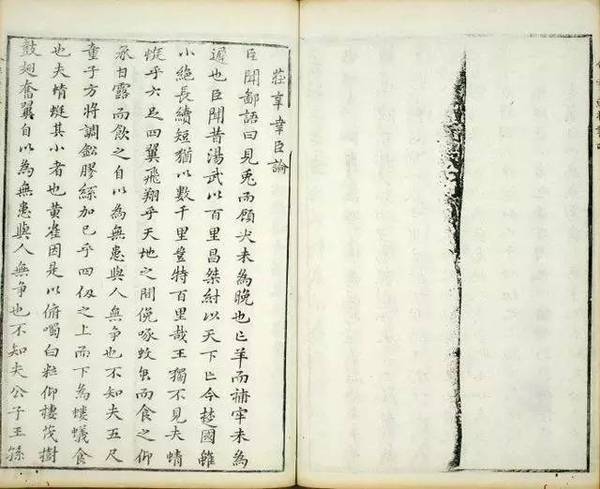 莊辛幸臣論
臣聞鄙語曰見兎而顧犬未為晚也亡羊而補牢未為
遲也臣聞昔湯武以百里昌桀紂以天下亡今楚國雖
小絶長續短猶以數千里豈特百里哉王獨不見夫蜻
蜓乎六足四翼飛翔乎天地之間俛啄蚊虻而食之仰
承甘露而飲之自以為無患與人無爭也不知夫五尺
童子方將調鈆膠絲加己乎四仭之上而下為螻蟻食
也夫蜻蜓其小者也黄雀因是以俯噣白粒仰棲茂樹
鼓翅奮翼自以為無患與人無爭也不知夫公子王孫